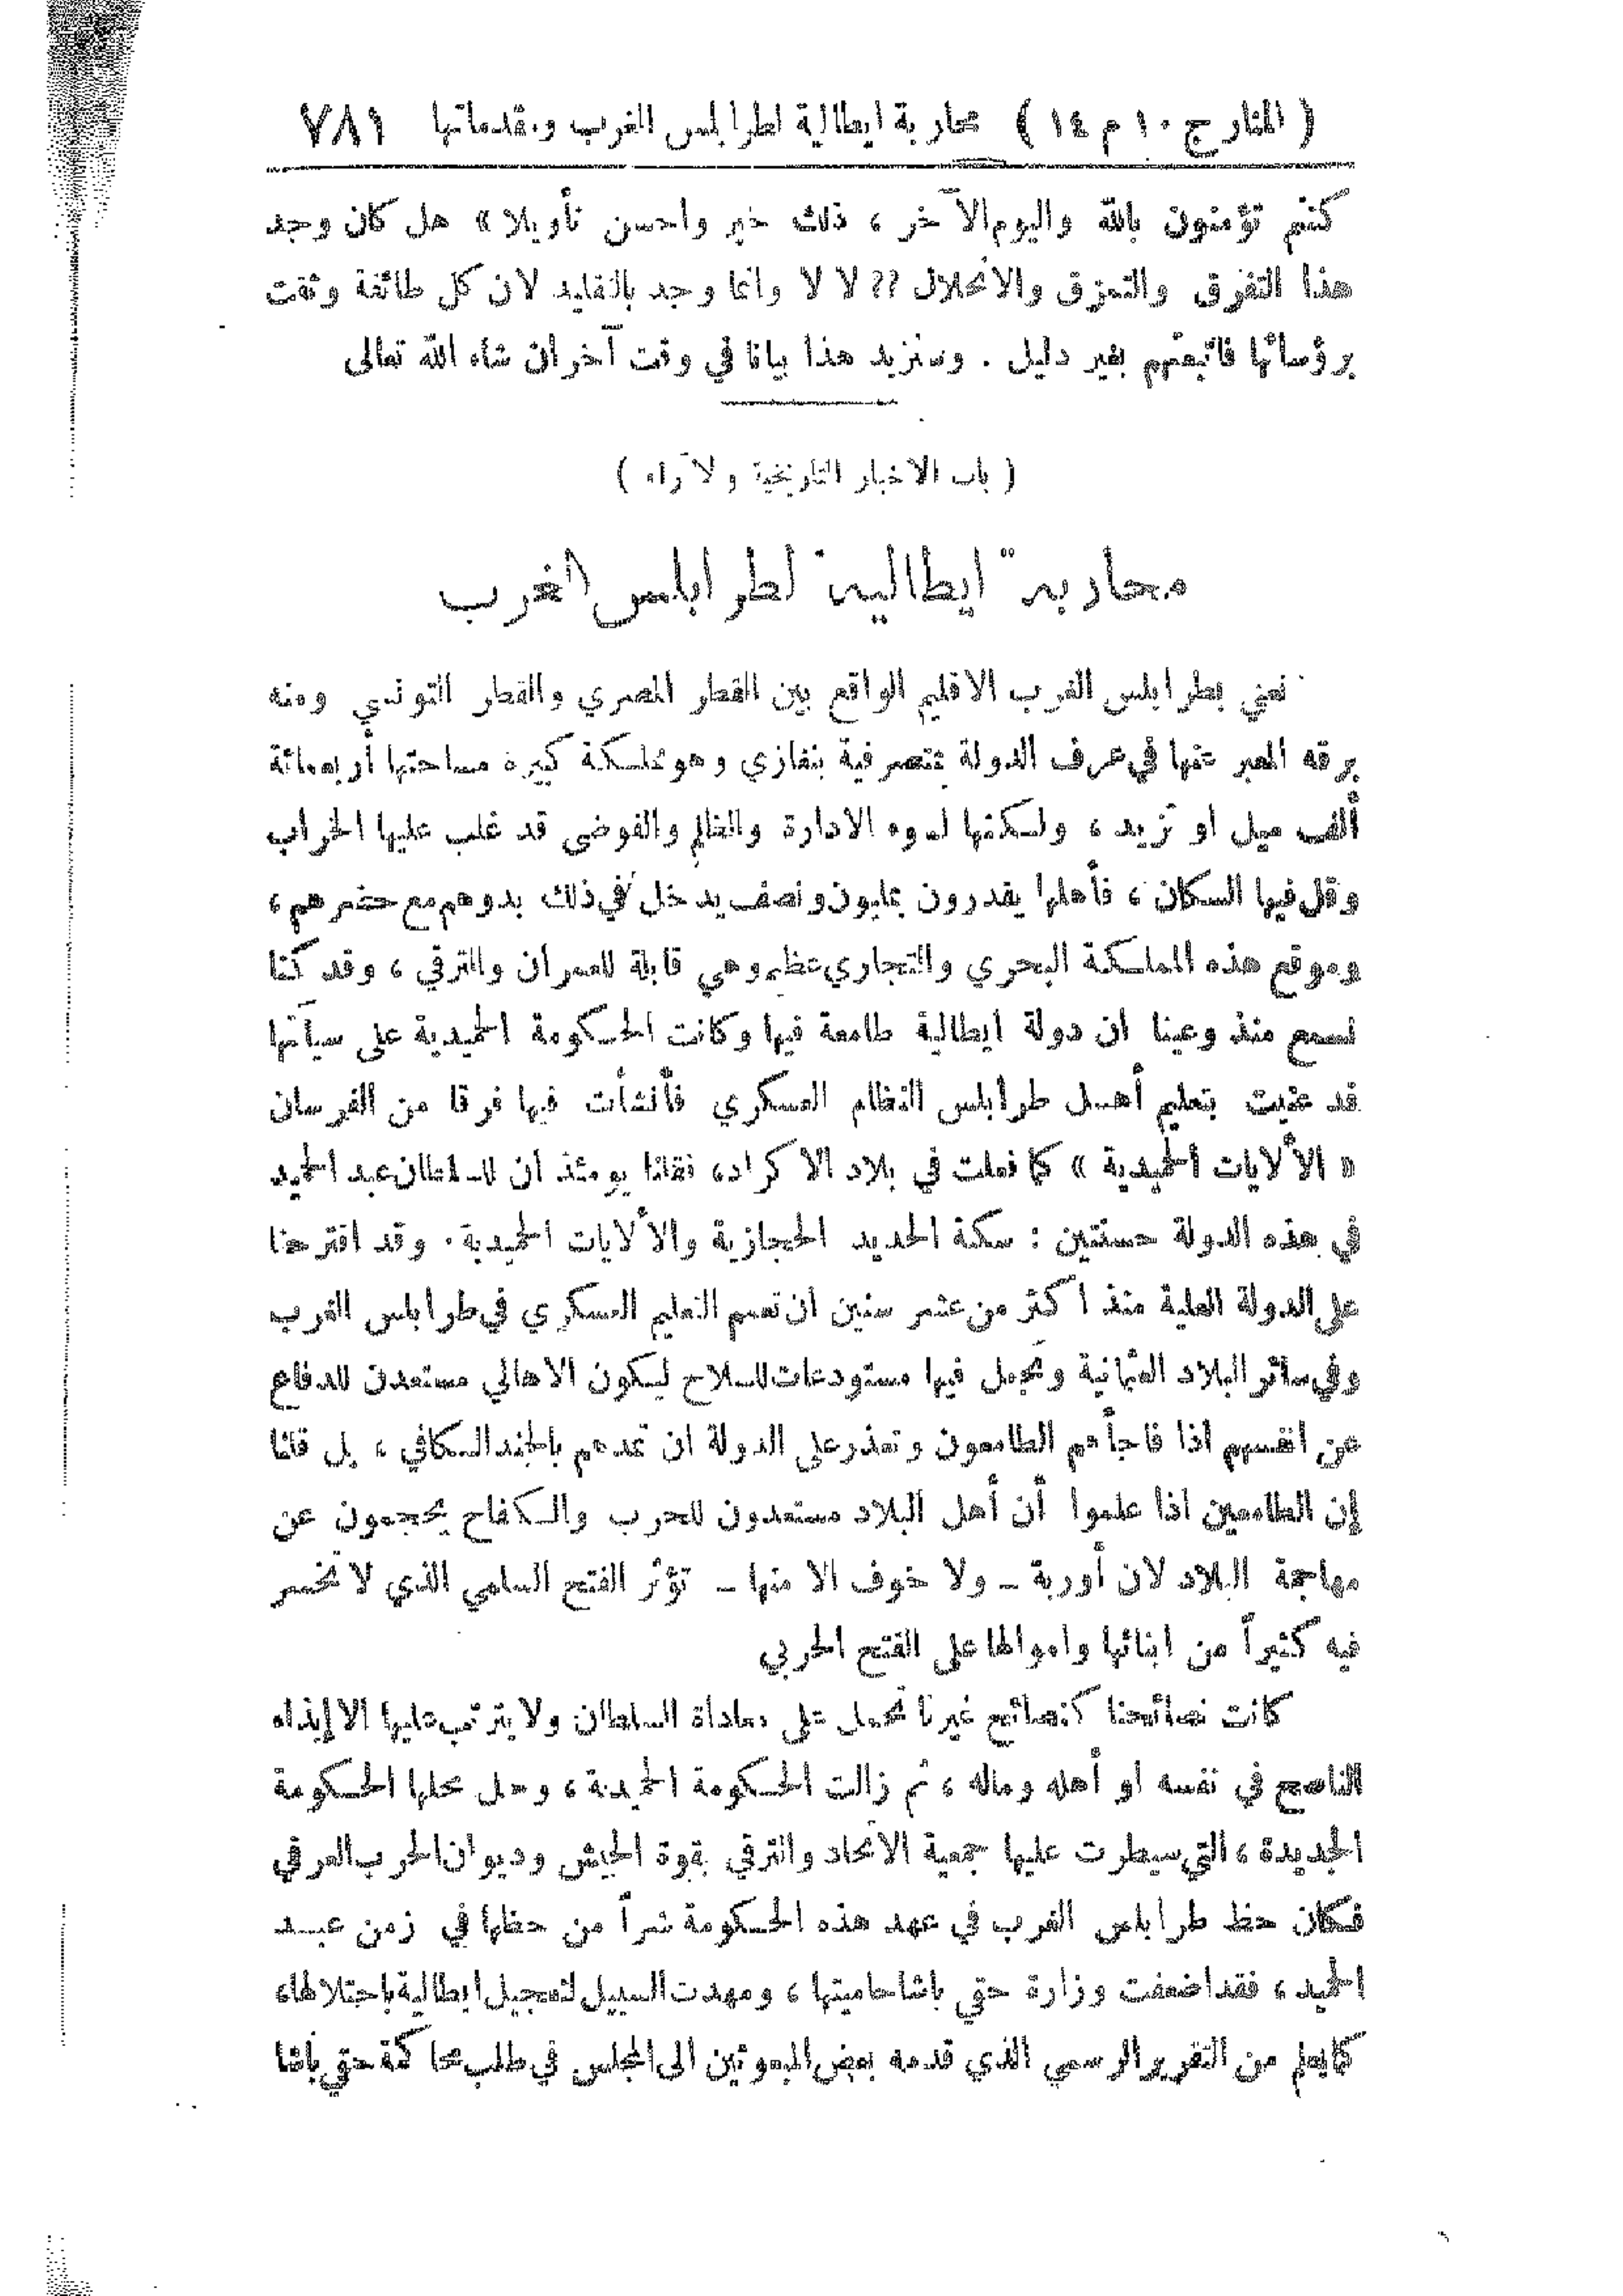 ( المنار ج ١٠ م ١٤ ) محاربة ايطالية لطرابلس الغرب ومقدماتها ٧٨١
كنتم تؤمنون بالله واليوم الآخر ، ذلك خير واحسن تأويلا » هل كان وجد
هذا التفرق والتمزق والانحلال ؟؟ لا لا وانما وجد بالتقليد لان كل طائفة وثقت
برؤسائها فاتبعتهم بغير دليل . وسنزيد هذا بيانا في وقت آخر ان شاء الله تعالى
( باب الاخبار التاريخية ولآراء )
محاربة ايطالية لطرابلس الغرب
نعني بطرابلس الغرب الاقليم الواقع بين القطر المصري والقطر التونسي ومنه
برقه المعبر عنها في عرف الدولة بمتصرفية بنغازي وهو مملكة كبيرة مساحتها أربعمائة
ألف ميل او تزيد ، ولكنها لسوء الادارة والظلم والفوضى قد غلب عليها الخراب
وقل فيها السكان ، فأهلها يقدرون بمليون ونصف يدخل في ذلك بدوهم مع حضرهم ،
وموقع هذه المملكة البحري والتجاري عظيم وهي قابلة للعمران والترقي ، وقد كنا
نسمع منذ وعينا ان دولة ايطالية طامعة فيها وكانت الحكومة الحميدية على سيآتها
قد عنيت بتعليم أهل طرابلس النظام العسكري فأنشأت فيها فرقا من الفرسان
« الألايات الحميدية » كما فعلت في بلاد الاكراد ، فقلنا يومئذ ان للسلطان عبد الحميد
في هذه الدولة حسنتين : سكة الحديد الحجازية والألايات الحميدية . وقد اقترحنا
على الدولة العلية منذ اكثر من عشر سنين ان تعمم التعليم العسكري في طرابلس الغرب
وفي سائر البلاد العثمانية وتجعل فيها مستودعات للسلاح ليكون الاهالي مستعدن للدفاع
عن انفسهم اذا فاجأهم الطامعون وتعذر على الدولة ان تمدهم بالجند الكافي ، بل قلنا
إن الطامعين اذا علموا أن أهل البلاد مستعدون للحرب والكفاح يحجمون عن
مهاجمة البلاد لان أوربة ــ ولا خوف الا منها ــ تؤثر الفتح السلمي الذي لا تخسر
فيه كثيراً من ابنائها واموالها على الفتح الحربي
كانت نصائحنا كنصائح غيرنا تحمل على معاداة السلطان ولا يترتب عليها الا إيذاء
الناصح في نفسه او أهله وماله ، ثم زالت الحكومة الحميدية ، وحل محلها الحكومة
الجديدة ، التي سيطرت عليها جمعية الاتحاد والترقي بقوة الجيش وديوان الحرب العرفي
فكان حظ طرابلس الغرب في عهد هذه الحكومة شراً من حظها في زمن عبد
الحميد ، فقد اضعفت وزارة حقي باشا حاميتها ، ومهدت السبيل لتعجيل ايطالية باحتلالها ،
كما يعلم من التقرير الرسمي الذي قدمه بعض المبعوثين الى المجلس في طلب محاكمة حقي باشا